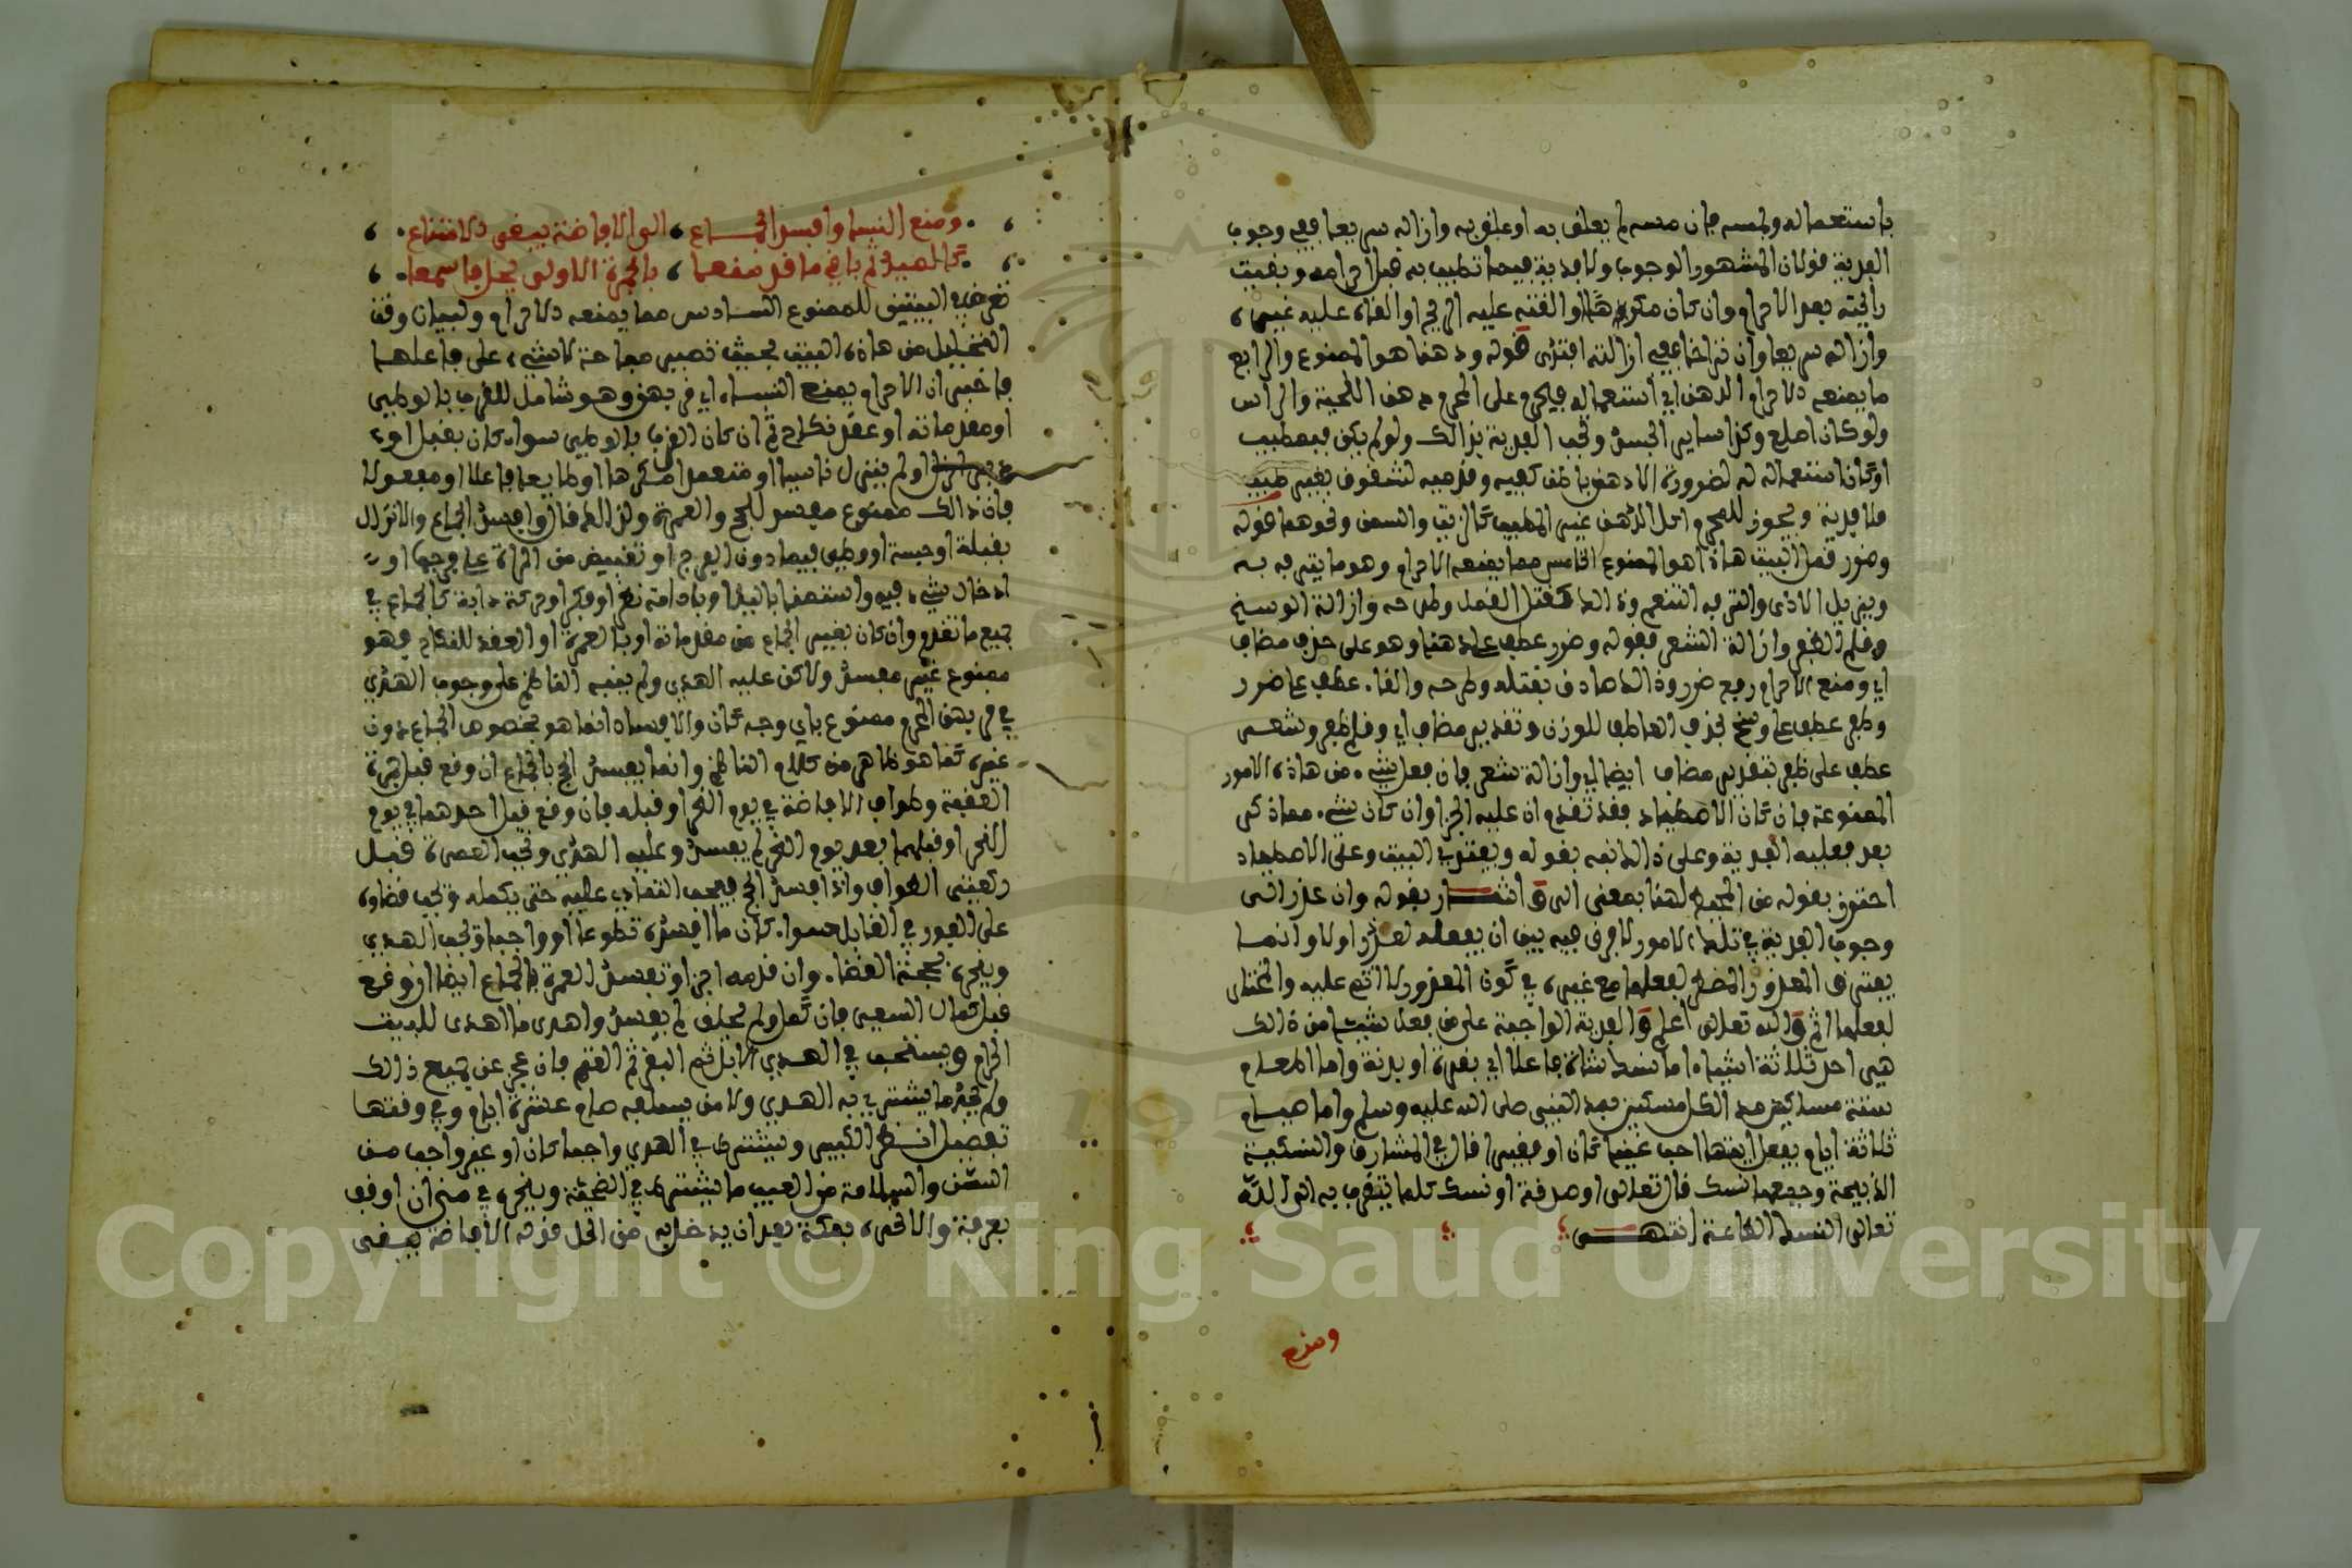 باستعماله ولمسه فإن مسه لم يعلق به او علق به وازاله سريعا ففي وجوب
الفدية قولان المشهور الوجوب ولا فدية فيما تطيب به قبل احرامه وبقيت
رائحته بعد الاحرام وان كان مكروها او القته عليه الريح او القاه عليه غيره
وازاله سريعا وان تراخا في ازالته افتدى قوله ودهنا هو الممنوع الرابع
مما يمنعه الاحرام الدهن اي استعماله فيحرم على المحرم دهن اللحية والراس
ولو كان اصلع وكذا ساير الجسد وتجب الفدية بذالك ولو لم يكن فيه طيب
او كان استعماله له لضرورة الا دهن باطن كفيه وقدميه لشقوق بغير طيب
فلا فدية ويجوز للمحرم اكل الدهن غير المطيب كالزيت والسمن ونحوهما قوله
وضرر قمل البيت هاذا هو الممنوع الخامس مما يمنعه الاحرام وهو ما يترفه به
ويزيل الاذى والترفه التنعم وذالك كقتل القمل وطرحه وازالة الوسخ
وقلم الظفر وازالة الشعر فقوله وضرر عطف على دهنا وهو على حذف مضاف
اي ومنع الاحرام رفع ضرر وذالك صادق بقتله وطرحه والقا عطف على ضرر
وظفر عطف على وسخ بحذف العاطف للوزن وتقدير مضاف اي وقلم ظفر وشعر
عطف على ظفر بتقدير مضاف ايضا اي وازالة شعر فان فعل شيء من هاذه الامور
الممنوعة فان كان الاصطياد فقد تقدم ان عليه الجزا وان كان شيء مما ذكر
بعد فعليه الفدية وعلى ذالك نبه بقوله ويفتدي البيت وعن الاصطياد
احترز بقوله من المحيط لهنا بمعنى الى ق اشـار بقوله وان عذر الى
وجوب الفدية في تلك الامور لا فرق فيه بين ان يفعله لعذر او لا وانما
يفترق المعذور المضطر لفعلها مع غيره في كون المعذور لا اثم عليه والمختار
لفعلها اثم ق والله تعلى اعلم ق الفدية الواجبة على من فعل شيئا من ذالك
هي احد ثلاثة اشياء اما نسك شاة فاعلا اي بقرة او بدنة واما اطعام
ستة مساكين مد الكل مسكين بمد النبي صلى الله عليه وسلم واما صيام
ثلاثة ايام يفعل ايها احب غنيا كان او فقيرا قال في المشارق والنسكية
الذبيحة وجمعها نسك قال تعلى او صدقة او نسك كلما يتقرب به الى الله
تعالى النسك الطاعة انتهـى
ومنع
ومنع النسا وافسد الجمـاع الى الافاضة يبقى الامتناع
كالصيد ثم باقي ما قد منعا بالجمرة الاولى يحل فاسمعا
تعرض في البيتين للممنوع السادس مما يمنعه الاحرام ولبيان وقت
التحليل من هاذه البيت بحيث تصير مباحة لا شيء على فاعلها
فاخبر ان الاحرام يمنع النساء اي قربهن وهو شامل للقرب بالوطي
او مقدماته او عقد نكاح ثم ان كان القرب بالوطي سواء كان بقبل او
دبر انزل او لم ينزل ناسيا او متعمدا مكرها او طايعا فاعلا او مفعولا
فان ذالك ممنوع مفسد للحج والعمرة ولذالك قال وافسد الجماع والانزال
بقبلة او جسة او وطي فيما دون الفرج او تغييض من المراة على فرجها او
ادخال شيء فيه واستمنا باليد او بادامة نظر او فكر او حركة دابة كالجماع في
جميع ما تقدم وان كان بغير الجماع من مقدماته او بالعمرة او العقد للنكاح فهو
ممنوع غير مفسد ولاكن عليه الهدي ولم ينبه الناظم على وجوب الهدي
في قربهن المحرم ممنوع باي وجه كان والافساد انما هو بخصوص الجماع دون
غيره كما هو ظاهر من كلام الناظم وانما يفسد الحج بالجماع ان وقع قبل جمرة
العقبة وطواف الافاضة في يوم النحر او قبله فان وقع قبل احدهما في يوم
النحر او قبلهما بعد يوم النحر لم يفسد وعليه الهدي وتجب العمرة قبل
ركعتى الطواف واذا فسد الحج فيجب التمادي عليه حتى يكمله وتجب قضاؤه
على الفور في القابل سواء كان ما افسده تطوعا او واجبا وتجب الهدي
وينحره بحجة القضا وان قدمه اجزا وتفسد العمرة بالجماع ايضا ان وقع
قبل كمال السعي فان كمل ولم يحلق لم يفسد واهدى ما اهدى للبيت
الحرام ويستحب في الهدي الابل ثم البقر ثم الغنم فان عجز عن جميع ذالك
ولم يجد ما يشتري به الهدي ولا من يسلفه صام عشرة ايام وفي وقتها
تفصيل انظر الكبير ويشترى في الهدي واجبا كان او غير واجب من
السن والسلامة من العيب ما يشترط في الضحية وينحره في منى ان اوقف
بعرفة والا نحره بمكة بعد ان يدخل به من الحل قوله الافاضة يبـقى
Copyright © King Saud University